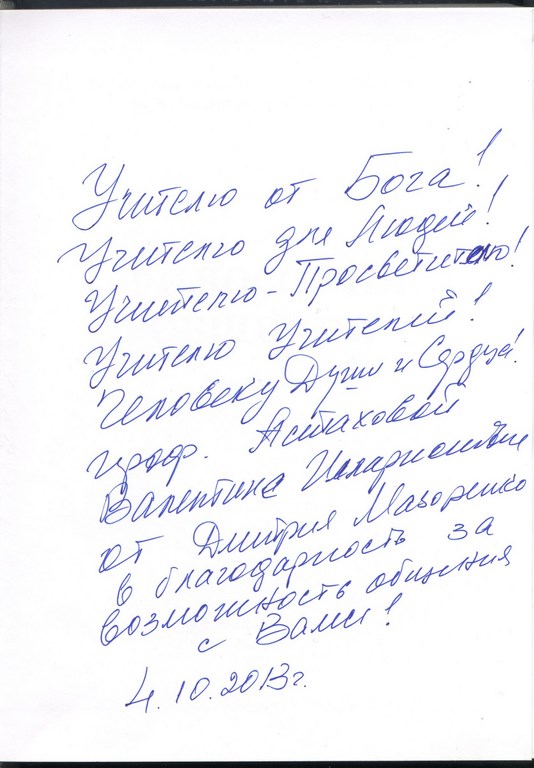 Учителю от Бога!
Учителю для Людей!
Учителю - Просветителю!
Учителю Учителей!
Человеку Души и Сердца!
проф. Астаховой
Валентине Илларионовне
от Дмитрия Мазоренко
в благодарность за
возможность общения
с Вами!
4.10.2013г.